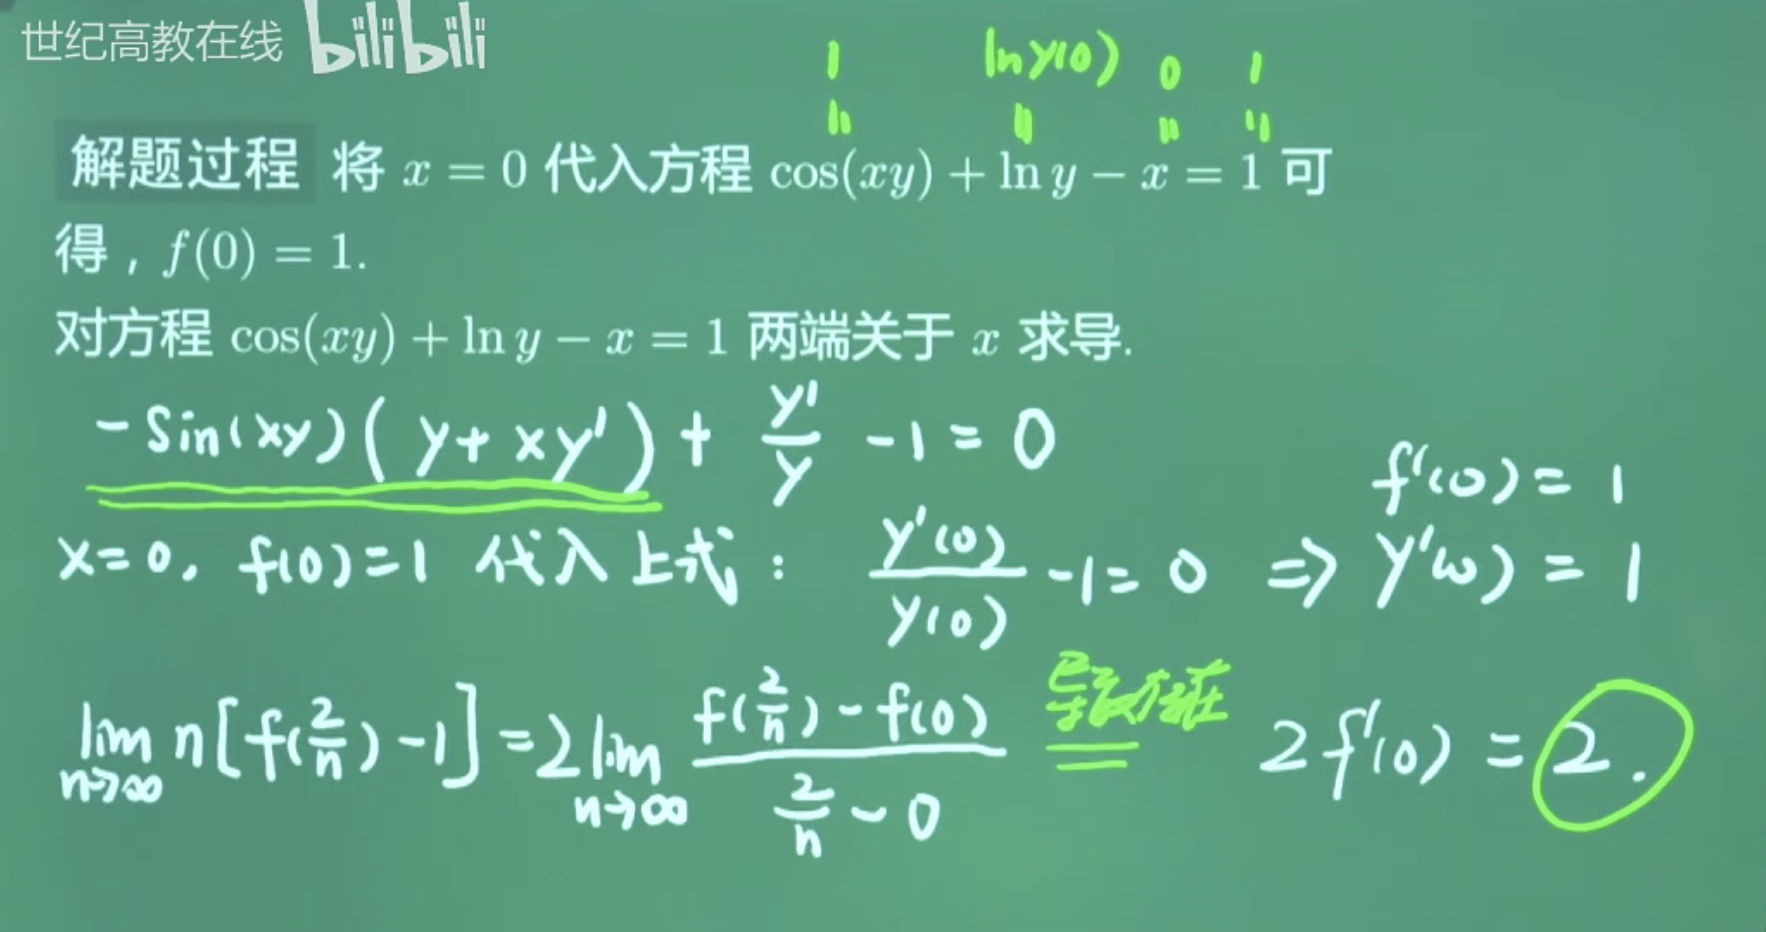 世纪高教在线 bilibili
1 ln y(0) 0 1
॥ ॥ ॥ ॥
解题过程 将 x = 0 代入方程 cos(xy) + ln y − x = 1 可
得，f(0) = 1.
对方程 cos(xy) + ln y − x = 1 两端关于 x 求导.
-sin(xy)(y+xy')+ y'/y -1=0
f'(0)=1
x=0, f(0)=1 代入上式: y'(0)/y(0) -1=0 ⇒ y'(0)=1
lim n→∞ n[f(2/n)-1]=2 lim n→∞ (f(2/n)-f(0))/(2/n-0) 导数存在 = 2f'(0)=2.